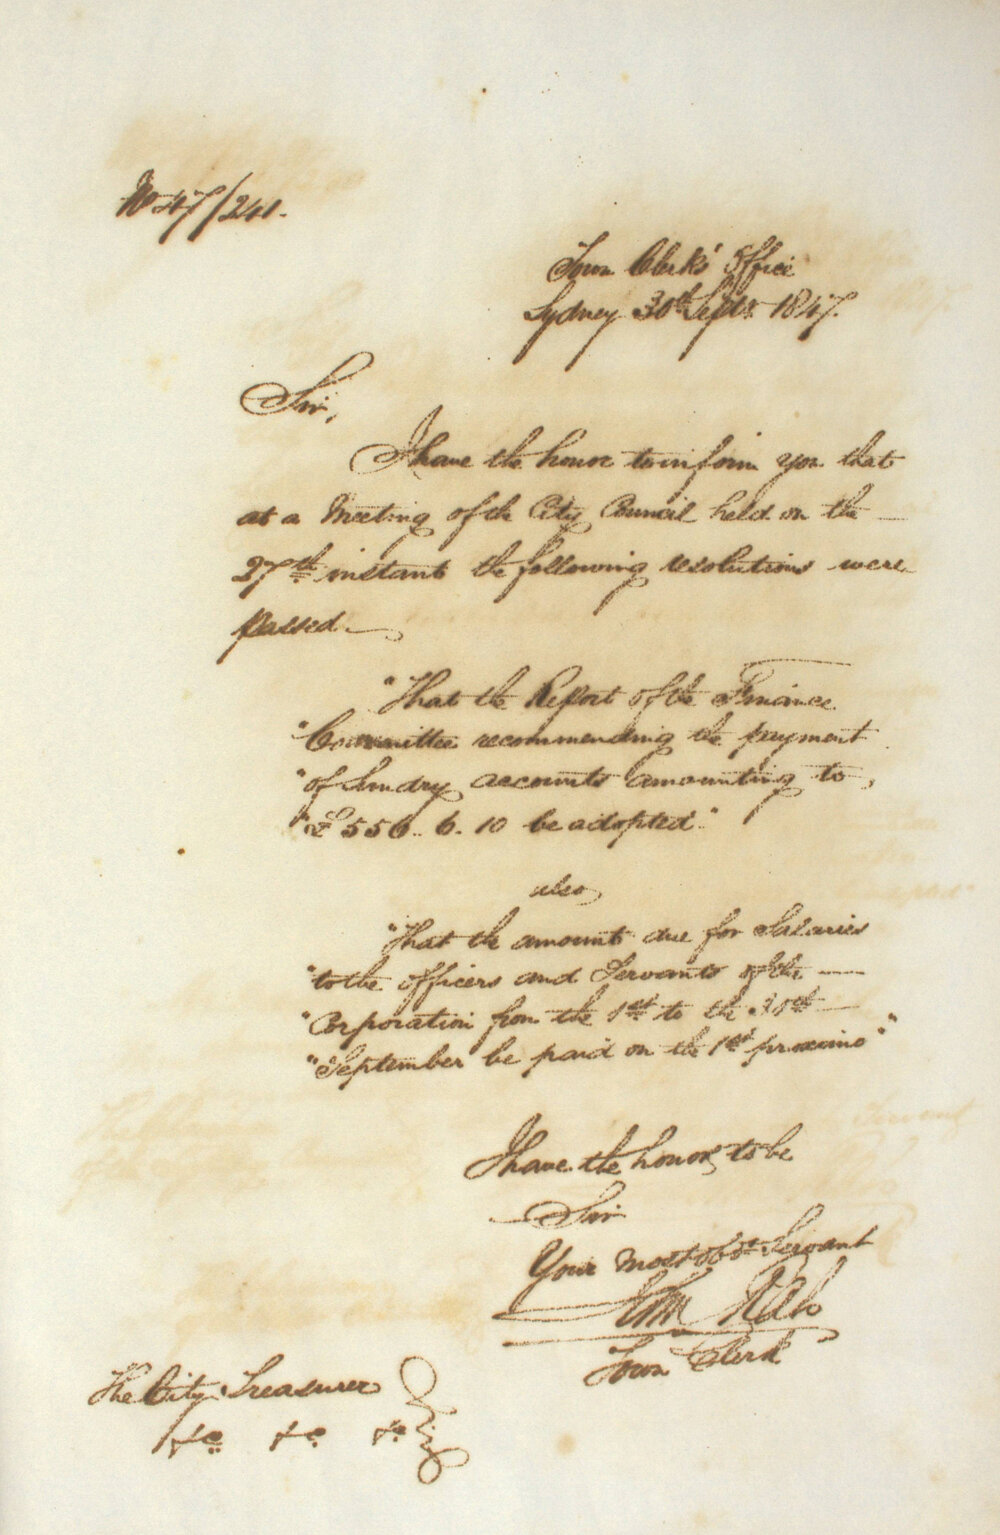 No 47/241.
Town Clerks' Office
Sydney 30th Septr 1847.
Sir,
I have the honor to inform you that
at a Meeting of the City Council held on the —
27th instant the following resolutions were
passed —
"That the Report of the Finance
"Committee recommending the payment
"of Sundry accounts amounting to,
"£556.. 6. 10 be adopted."
also,
"That the amount due for Salaries
"to the officers and Servants of the —
"Corporation from the 1st to the 30th —
"September be paid on the 1st proximo"
I have the honor, to be
Sir
Your most obdt Servant
John Rae
Town Clerk
The City Treasurer
&c &c &c